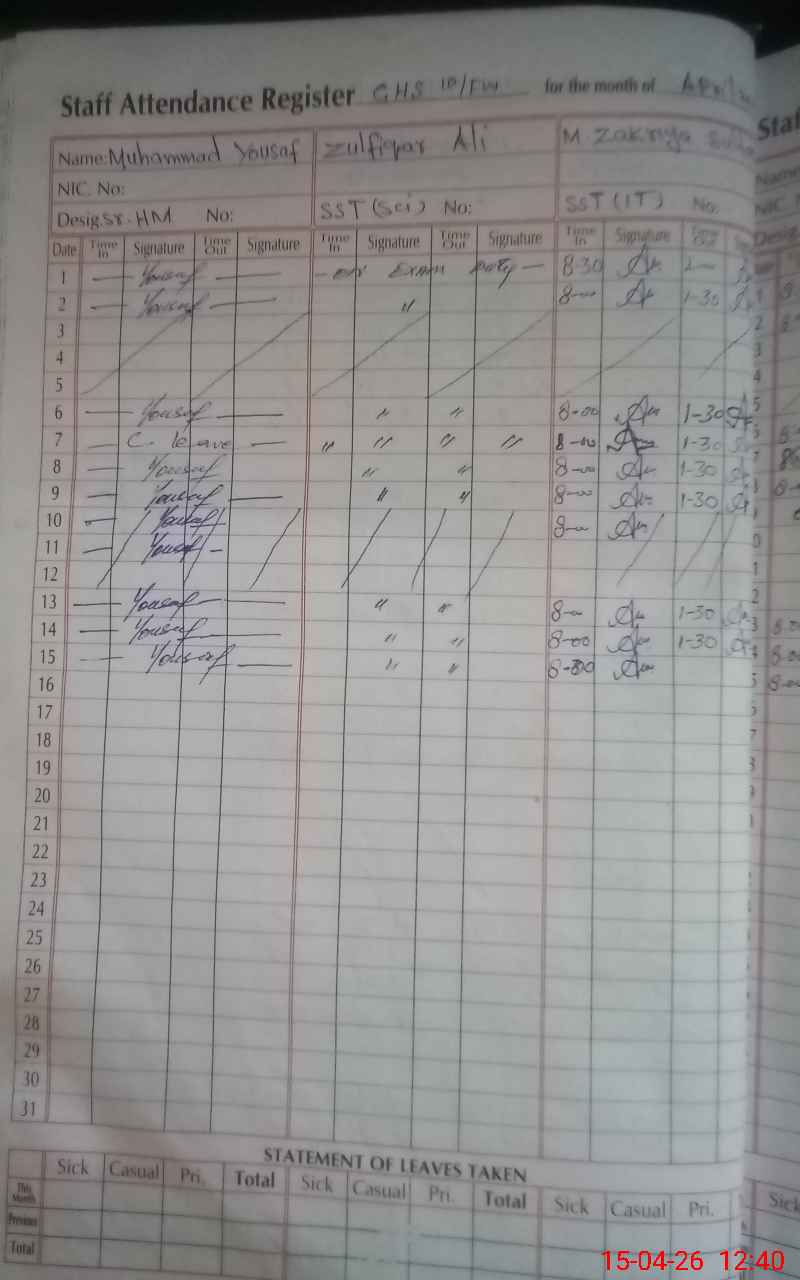 Staff Attendance Register GHS 10/FW for the month of April
Name: Muhammad Yousaf Zulfiqar Ali M. Zakriya
NIC. No:
Desig. Sr. HM No: SST (Sci) No: SST (IT) No:
Date Time In Signature Time Out Signature Time In Signature Time Out Signature Time In Signature Time Out
1 — Yousaf — Exam — 8-30
2 — Yousaf — " 8-00 1-30
3
4
5
6 — Yousaf — " " 8-00 1-30
7 — C. leave — " " " " 8-00 1-30
8 — Yousaf " " 8-00 1-30
9 — Yousaf — " " 8-00 1-30
10 — Yousaf 8-00
11 — Yousaf —
12
13 — Yousaf — " " 8-00 1-30
14 — Yousaf — " " 8-00 1-30
15 — Yousaf — " " 8-00
16
17
18
19
20
21
22
23
24
25
26
27
28
29
30
31
STATEMENT OF LEAVES TAKEN
Sick Casual Pri. Total Sick Casual Pri. Total Sick Casual Pri.
This Month
Previous
Total
15-04-26 12:40